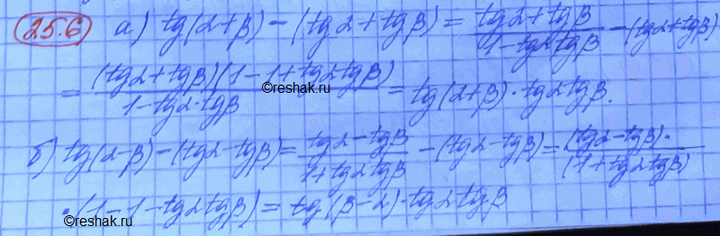 25.6 а) tg(α+β) − (tgα + tgβ) = (tgα + tgβ)/(1 − tgα tgβ) − (tgα + tgβ)
= (tgα + tgβ)(1 − 1 + tgα tgβ)/(1 − tgα·tgβ) = tg(α+β)·tgα tgβ.
©reshak.ru
б) tg(α−β) − (tgα − tgβ) = (tgα − tgβ)/(1 + tgα tgβ) − (tgα − tgβ) = (tgα − tgβ)·/(1 + tgα tgβ)
·(1 − 1 − tgα tgβ) = tg(β−α)·tgα tgβ
©reshak.ru